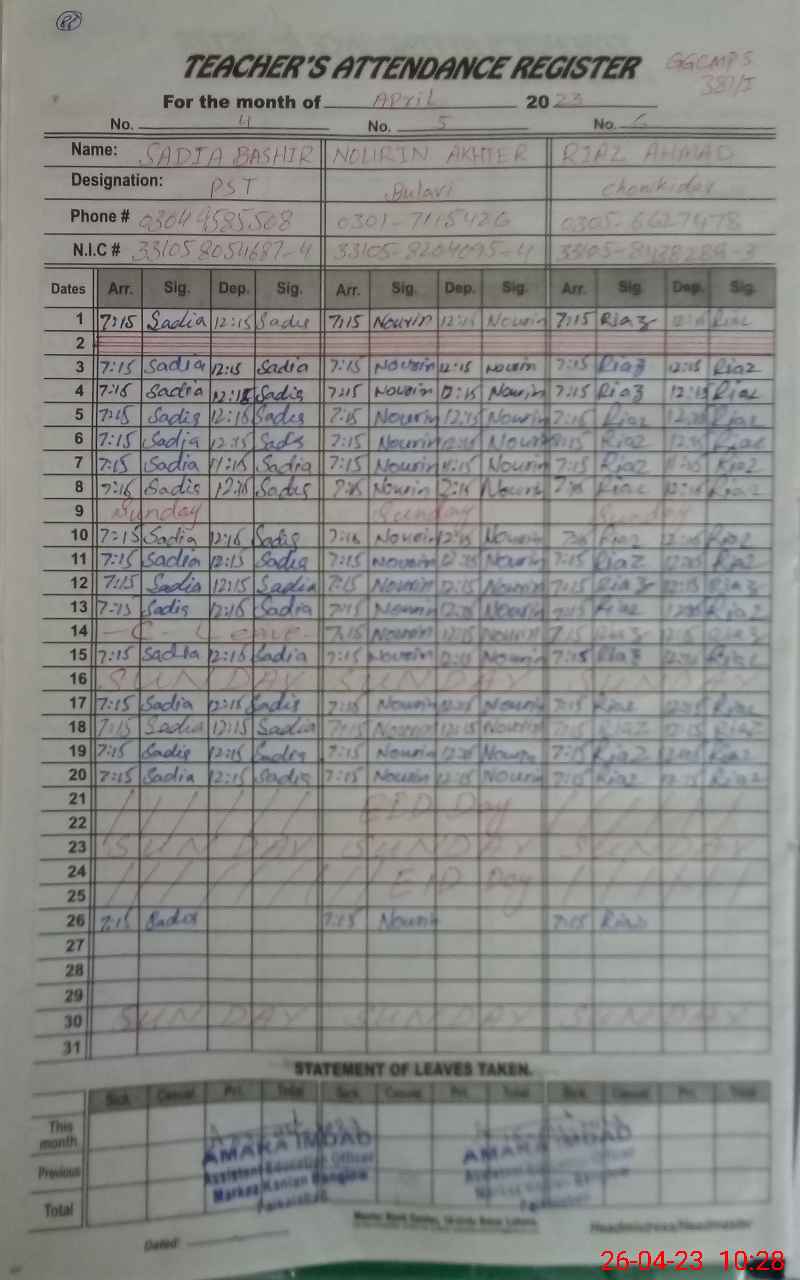 TEACHER'S ATTENDANCE REGISTER
GGCMPS
For the month of April 2023
No. 4 No. 5 No. 6
Name: SADIA BASHIR NOURIN AKHTER RIAZ AHMAD
Designation: PST Bulavi Chowkidar
Phone # 03044585508 0301-7115426 0305-6627478
N.I.C # 33105-8204095-4
Dates Arr. Sig. Dep. Sig. Arr. Sig. Dep. Sig. Arr. Sig. Dep. Sig.
1 7:15 Sadia 12:15 Sadia 7:15 Nourin 12:15 Nourin 7:15 Riaz Riaz
2
3 7:15 Sadia 12:15 Sadia 7:15 Nourin 12:15 Nourin 7:15 Riaz 12:15 Riaz
4 7:15 Sadia 12:15 Sadia 7:15 Nourin 12:15 Nourin 7:15 Riaz 12:15 Riaz
5 7:15 Sadia 12:15 Sadia 7:15 Nourin 12:15 Nourin 7:15 Riaz Riaz
6 7:15 Sadia Sadia 7:15 Nourin Nourin Riaz Riaz
7 7:15 Sadia 11:15 Sadia 7:15 Nourin 11:15 Nourin 7:15 Riaz Riaz
8 7:15 Sadia 12:15 Sadia Nourin Nourin Riaz 12:15 Riaz
9 Sunday Sunday Sunday
10 7:15 Sadia 12:15 Sadia 7:15 Nourin 12:15 Nourin Riaz Riaz
11 7:15 Sadia 12:15 Sadia 7:15 Nourin Nourin 7:15 Riaz Riaz
12 7:15 Sadia 12:15 Sadia 7:15 Nourin 12:15 Nourin 7:15 Riaz 12:15 Riaz
13 7:15 Sadia 12:15 Sadia 7:15 Nourin Nourin Riaz Riaz
14 C-Leave 7:15 Nourin 12:15 Nourin 7:15 Riaz 12:15 Riaz
15 7:15 Sadia 12:15 Sadia 7:15 Nourin Nourin 7:15 Riaz Riaz
16 SUNDAY SUNDAY SUNDAY
17 7:15 Sadia 12:15 Sadia 7:15 Nourin Nourin 7:15 Riaz 12:15 Riaz
18 7:15 Sadia 12:15 Sadia 7:15 Nourin 12:15 Nourin 7:15 Riaz 12:15 Riaz
19 7:15 Sadia 12:15 Sadia 7:15 Nourin Nourin 7:15 Riaz Riaz
20 7:15 Sadia 12:15 Sadia 7:15 Nourin 12:15 Nourin 7:15 Riaz 12:15 Riaz
21 EID Day
22
23 SUNDAY SUNDAY SUNDAY
24 EID Day
25
26 7:15 Sadia 7:15 Nourin 7:15 Riaz
27
28
29
30 SUNDAY SUNDAY SUNDAY
31
STATEMENT OF LEAVES TAKEN.
Sick Casual Pri. Total Sick Casual Pri. Total Sick Casual Pri. Total
This month
Previous
Total
AMARA IMDAD AMARA IMDAD
Assistant Education Officer
Dated
Headmistress/Headmaster
26-04-23 10:28